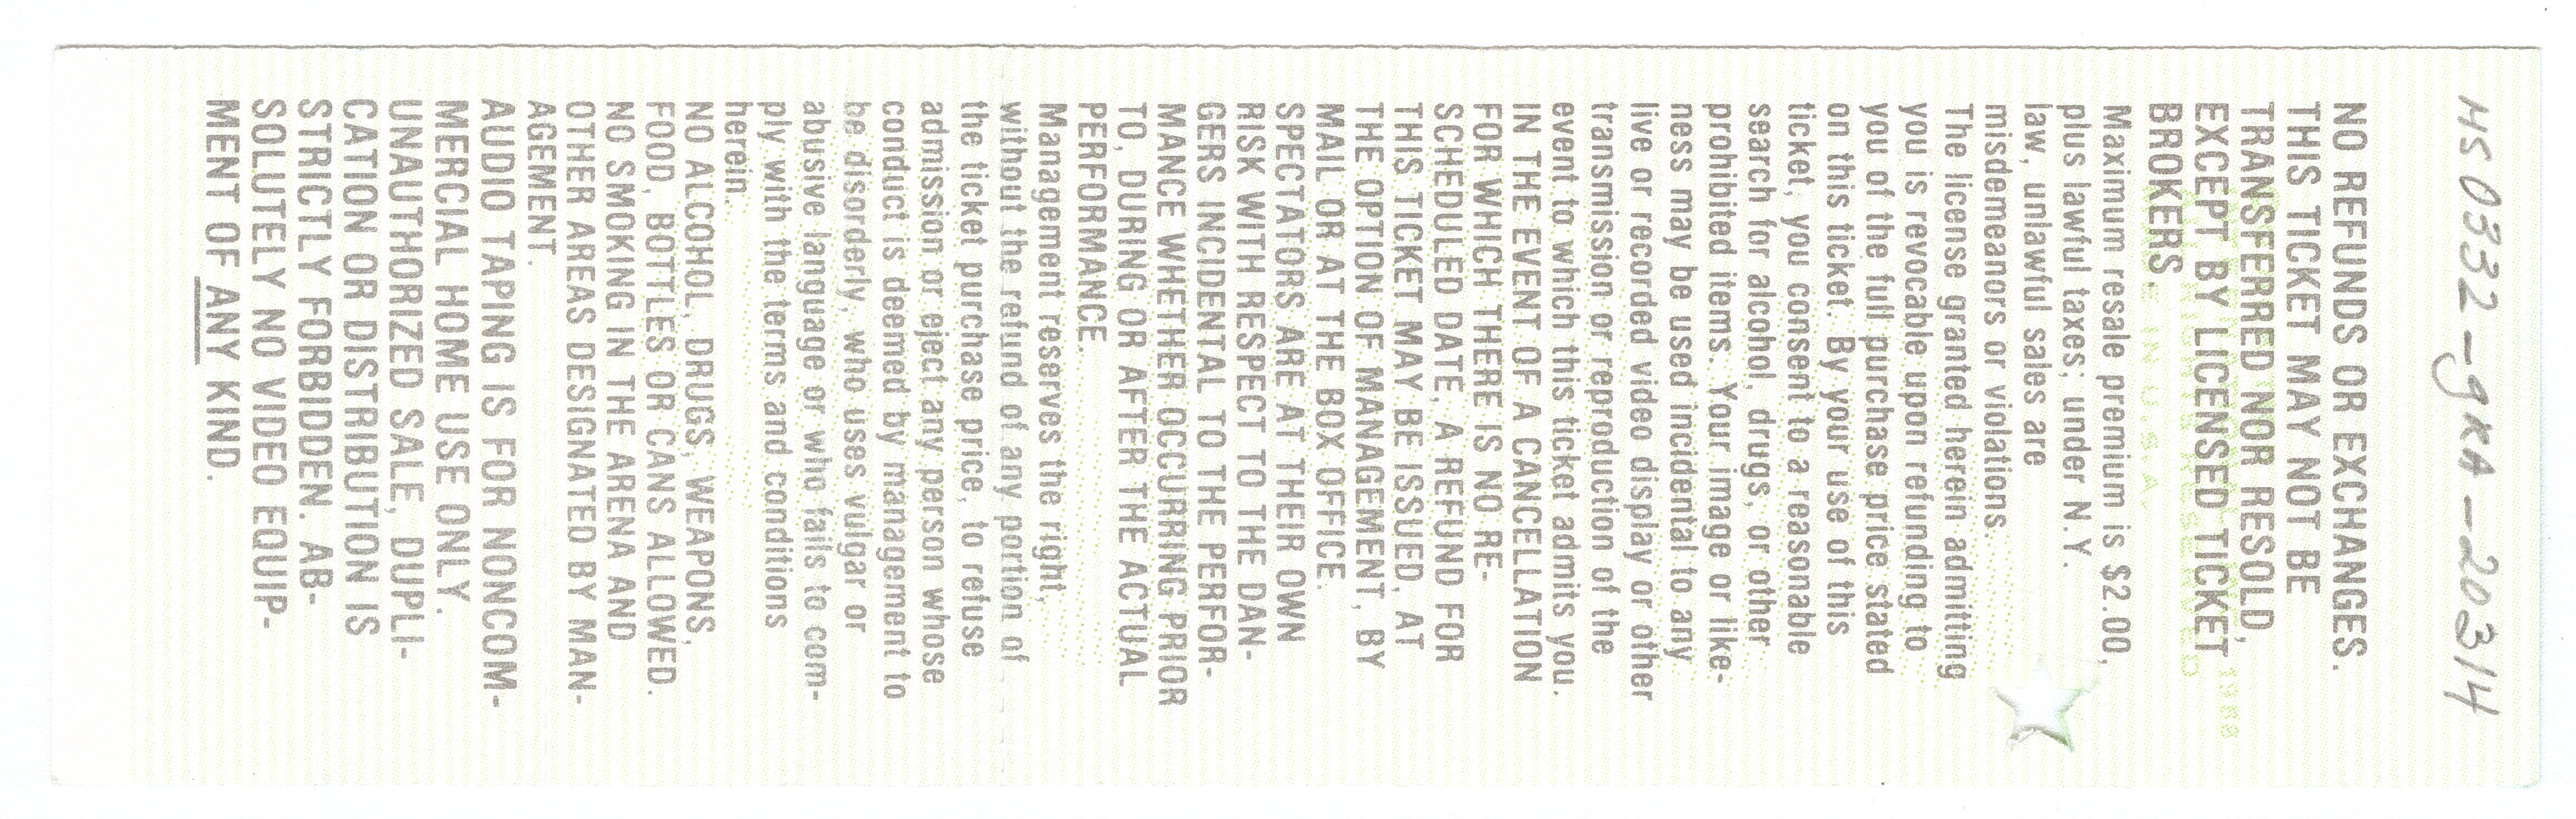 HS 0332-gKA-20314
NO REFUNDS OR EXCHANGES.
THIS TICKET MAY NOT BE
TRANSFERRED NOR RESOLD,
EXCEPT BY LICENSED TICKET
BROKERS.
Maximum resale premium is $2.00,
plus lawful taxes; under N.Y.
law, unlawful sales are
misdemeanors or violations.
The license granted herein admitting
you is revocable upon refunding to
you of the full purchase price stated
on this ticket. By your use of this
ticket, you consent to a reasonable
search for alcohol, drugs, or other
prohibited items. Your image or like-
ness may be used incidental to any
live or recorded video display or other
transmission or reproduction of the
event to which this ticket admits you.
IN THE EVENT OF A CANCELLATION
FOR WHICH THERE IS NO RE-
SCHEDULED DATE, A REFUND FOR
THIS TICKET MAY BE ISSUED, AT
THE OPTION OF MANAGEMENT, BY
MAIL OR AT THE BOX OFFICE.
SPECTATORS ARE AT THEIR OWN
RISK WITH RESPECT TO THE DAN-
GERS INCIDENTAL TO THE PERFOR-
MANCE WHETHER OCCURRING PRIOR
TO, DURING OR AFTER THE ACTUAL
PERFORMANCE.
Management reserves the right,
without the refund of any portion of
the ticket purchase price, to refuse
admission or eject any person whose
conduct is deemed by management to
be disorderly, who uses vulgar or
abusive language or who fails to com-
ply with the terms and conditions
herein.
NO ALCOHOL, DRUGS, WEAPONS,
FOOD, BOTTLES OR CANS ALLOWED.
NO SMOKING IN THE ARENA AND
OTHER AREAS DESIGNATED BY MAN-
AGEMENT.
AUDIO TAPING IS FOR NONCOM-
MERCIAL HOME USE ONLY.
UNAUTHORIZED SALE, DUPLI-
CATION OR DISTRIBUTION IS
STRICTLY FORBIDDEN. AB-
SOLUTELY NO VIDEO EQUIP-
MENT OF ANY KIND.